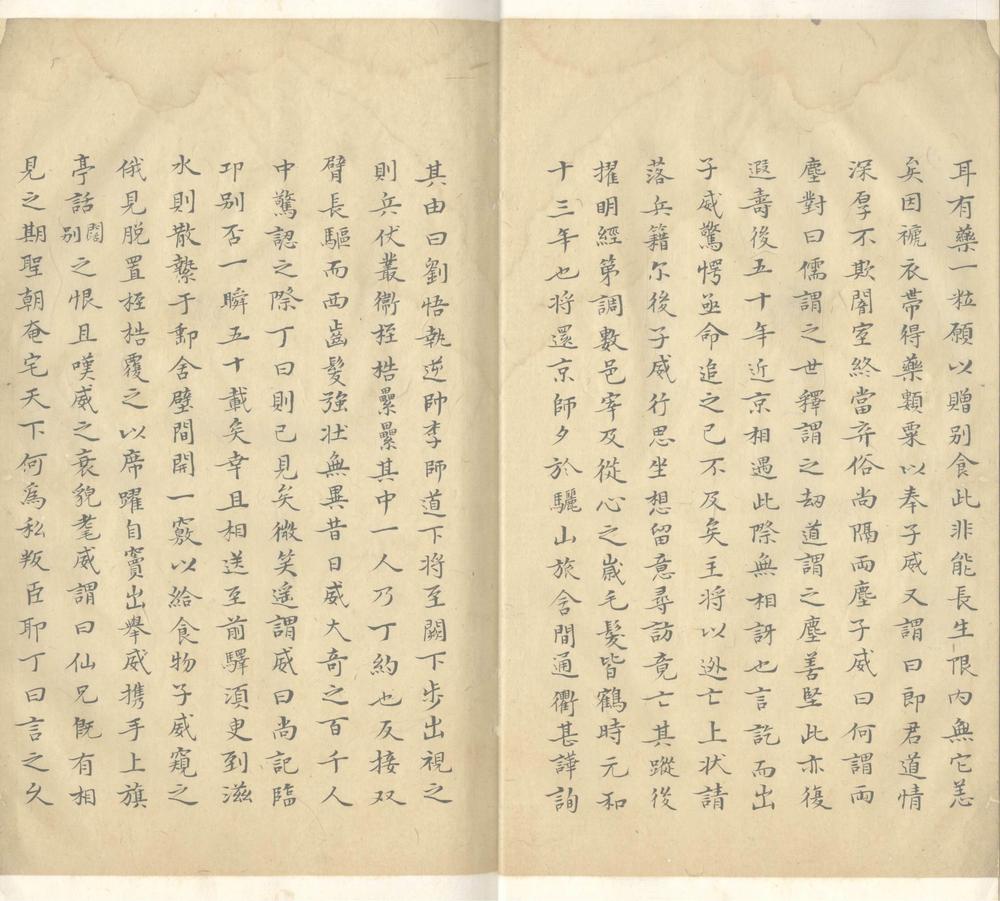 耳有藥一粒願以贈别食此非能長生限内無它恙
矣因褫衣帶得藥顆粟以奉子威又謂曰郎君道情
深厚不欺闇室終當弃俗尚隔兩塵子威曰何謂兩
塵對曰儒謂之世釋謂之刼道謂之塵善堅此亦復
遐壽後五十年近京相遇此際無相訝也言訖而出
子威驚愕亟命追之已不及矣主將以逊亡上狀請
落兵籍尔後子威行思坐想留意尋訪竟亡其蹤後
擢明經第調數邑宰及從心之歲毛髮皆鶴時元和
十三年也将還京師夕於驪山旅舍間通衢甚譁詢
其由曰劉悟執逆帥李師道下将至闕下步出視之
則兵伏叢衞桎梏纍纍其中一人乃丁約也反接双
臂長驅而西齒髮強壮無異昔日威大奇之百千人
中驚認之際丁曰則已見矣微笑遥謂威曰尚記臨
卭别否一瞬五十載矣幸且相送至前驛湏叟到滋
水則散縶于郵舍壁間開一竅以給食物子威窺之
俄見脱置桎梏覆之以席躍自竇出舉威携手上旗
亭話闊别之恨且嘆威之衰貌耄威謂曰仙兄既有相
見之期聖朝奄宅天下何為私叛臣耶丁曰言之久